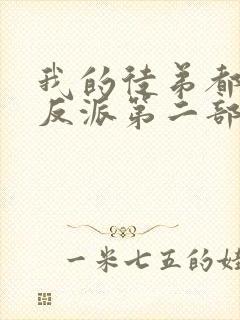 我的徒弟都
反派第二部
一米七五的娃